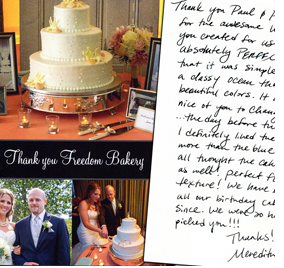 Thank you Freedom Bakery
Thank you Paul &
for the awesome
you created for us
absolutely PERFEC
that it was simple
a classy ocean the
beautiful colors. It
nice of you to
...the day before th
I definitely liked the
more than the blue
all thought the cak
as well! perfect f
texture! We have
all our birthday cak
Since. We were so h
picked you!!!
Thanks!
Meredith